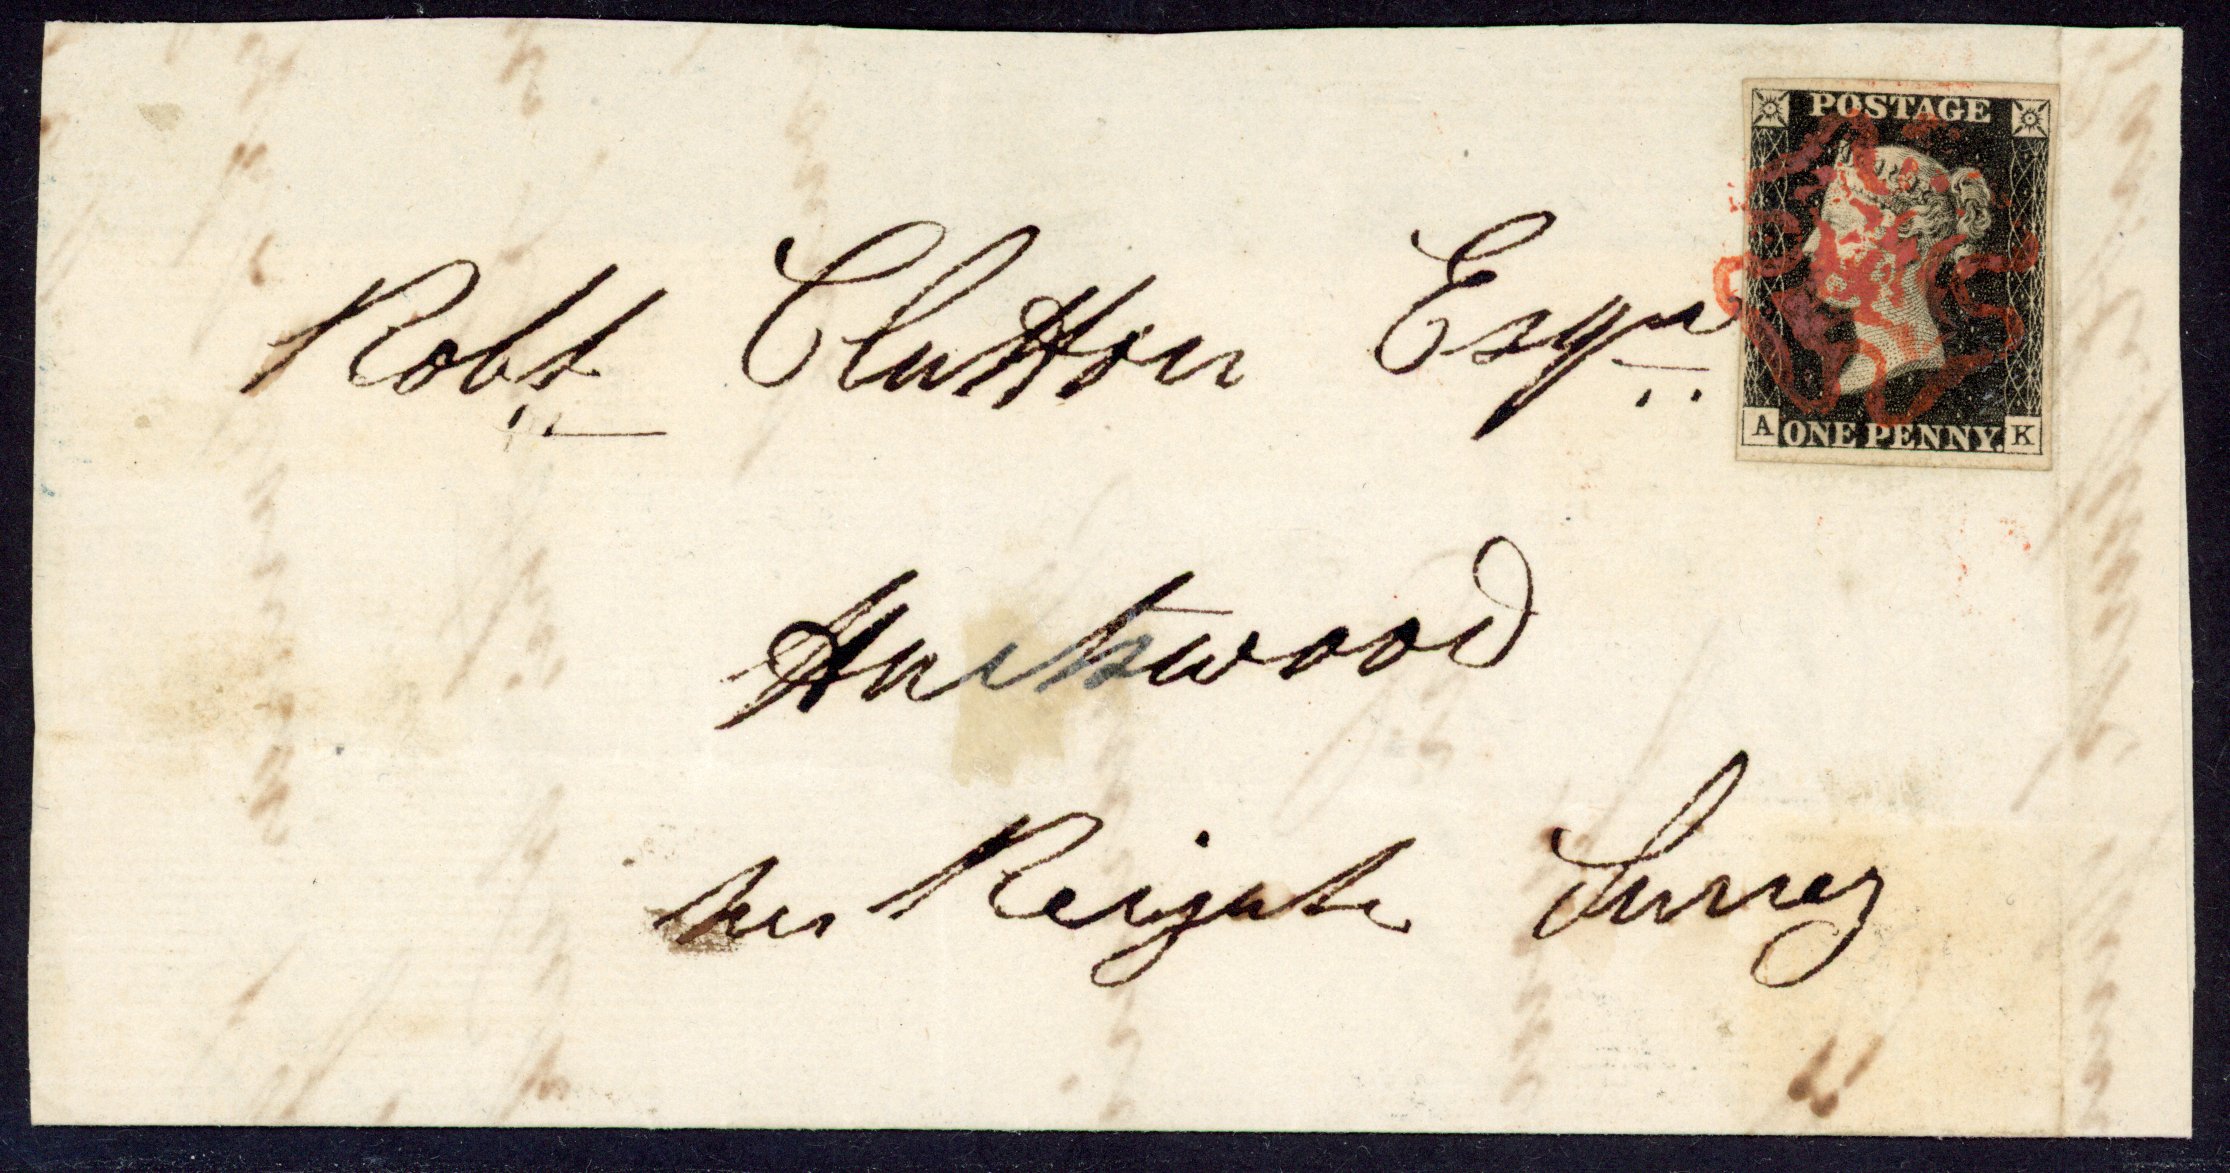 POSTAGE
Robt Clutton Esqr
A ONE PENNY. K
Hartswood
nr Reigate Surrey